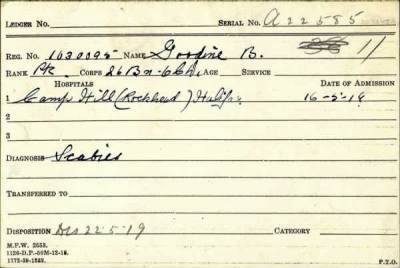 LEDGER No. SERIAL No. A22585
REG. No. 1030095 NAME Goodine B. 11
RANK Pte. CORPS 26Bn. AGE SERVICE
HOSPITALS DATE OF ADMISSION
1 Camp Hill (Rockhead) Halifax 16-5-19
2
3
DIAGNOSIS Scabies
TRANSFERRED TO
DISPOSITION Dis 22-5-19 CATEGORY
M.F.W. 2553.
1126-D.P.-50M-12-18.
1772-39-1322. P.T.O.